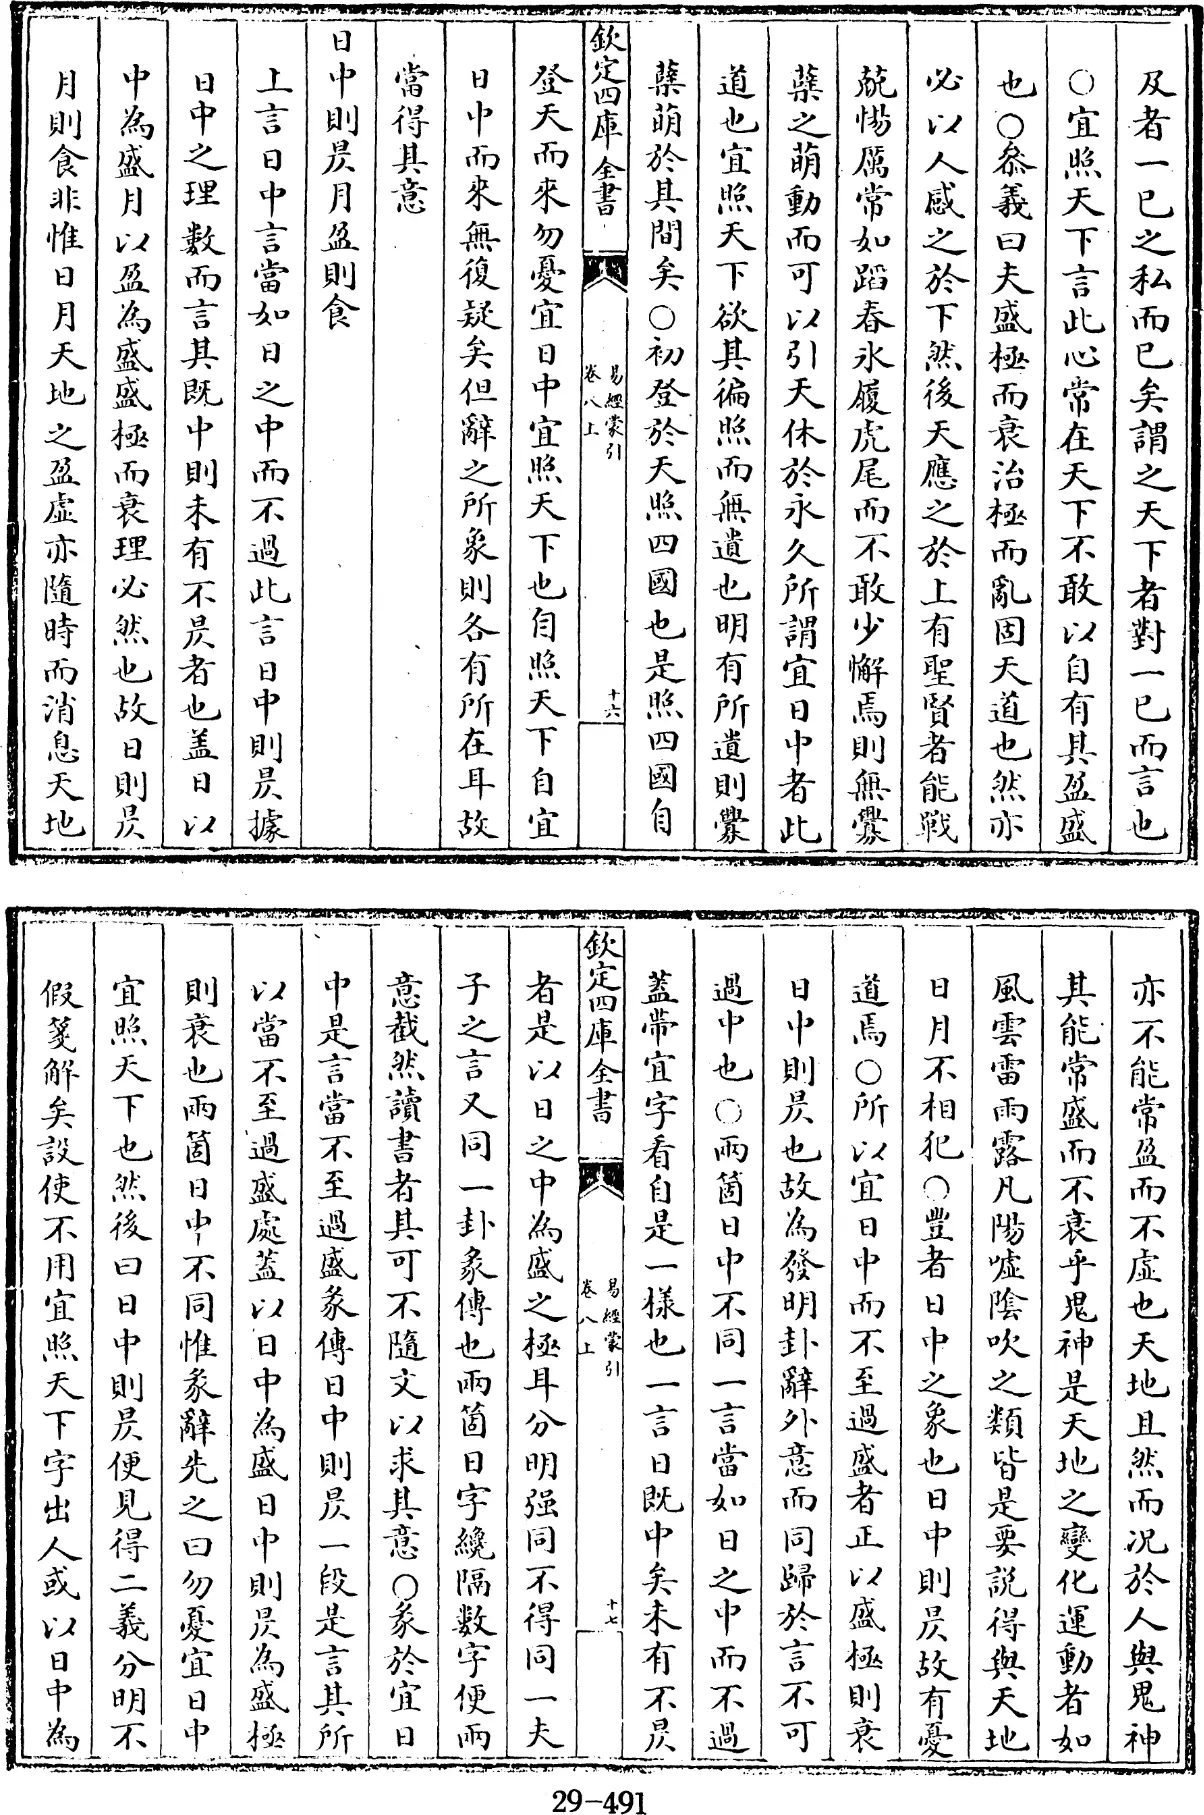 及者一已之私而已矣謂之天下者對一已而言也
○宜照天下言此心常在天下不敢以自有其盈盛
也○叅義曰夫盛極而衰治極而亂固天道也然亦
必以人感之於下然後天應之於上有聖賢者能戰
兢惕厲常如蹈春氷履虎尾而不敢少懈焉則無釁
蘖之萌動而可以引天休於永久所謂宜日中者此
道也宜照天下欲其徧照而無遺也明有所遺則釁
蘖萌於其間矣○初登於天照四國也是照四國自
欽定四庫全書
易經蒙引
卷八上
十六
登天而來勿憂宜日中宜照天下也自照天下自宜
日中而來無復疑矣但辭之所象則各有所在耳故
當得其意
日中則昃月盈則食
上言日中言當如日之中而不過此言日中則昃據
日中之理數而言其既中則未有不昃者也盖日以
中為盛月以盈為盛盛極而衰理必然也故日則昃
月則食非惟日月天地之盈虛亦隨時而消息天地
亦不能常盈而不虛也天地且然而况於人與鬼神
其能常盛而不衰乎鬼神是天地之變化運動者如
風雲雷雨露凡陽噓陰吹之類皆是要説得與天地
日月不相犯○豐者日中之象也日中則昃故有憂
道焉○所以宜日中而不至過盛者正以盛極則衰
日中則昃也故為發明卦辭外意而同歸於言不可
過中也○兩箇日中不同一言當如日之中而不過
蓋帶宜字看自是一樣也一言日既中矣未有不昃
欽定四庫全書
易經蒙引
卷八上
十七
者是以日之中為盛之極耳分明强同不得同一夫
子之言又同一卦彖傳也兩箇日字纔隔數字便兩
意截然讀書者其可不隨文以求其意○彖於宜日
中是言當不至過盛彖傳日中則昃一段是言其所
以當不至過盛處蓋以日中為盛日中則昃為盛極
則衰也兩箇日中不同惟彖辭先之曰勿憂宜日中
宜照天下也然後曰日中則昃便見得二義分明不
假箋解矣設使不用宜照天下字出人或以日中為
29-491